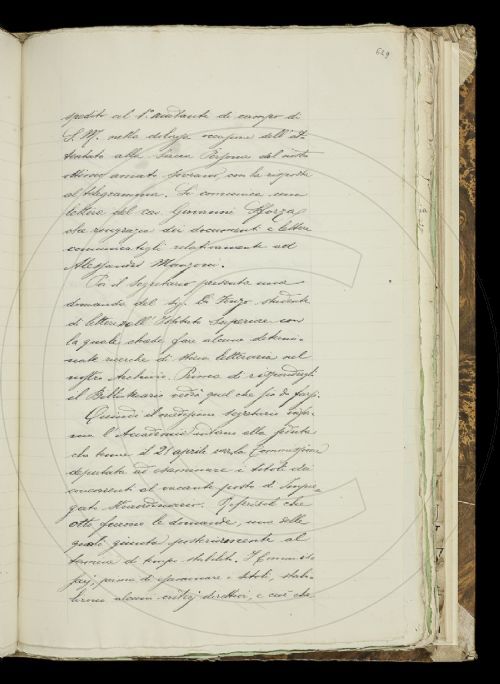 629
spedito al 1° aiutante di campo di
S. M. nella dolorosa occasione dell'at-
tentato alla Sacra Persona del nostro
amato Sovrano, con la risposta
al telegramma. Si comunica una
lettera del cav. Giovanni Sforza
che ringrazia dei documenti e lettere
comunicatigli relativamente ad
Alessandro Manzoni.
Poi il Segretario presenta una
domanda del sig. De studente
di lettere nell'Istituto Superiore con
la quale chiede fare alcune determi-
nate ricerche di storia letteraria nel
nostro Archivio. Prima di rispondergli
il Bibliotecario vedrà quel che sia da farsi.
Quindi il medesimo segretario infor-
ma l'Accademia intorno alla seduta
che tenne il 21 aprile la Commissione
deputata ad esaminare i titoli dei
concorrenti al vacante posto d'Impie-
gato straordinario. Riferisce che
otto fecero la domanda, una delle
quali giunta posteriormente al
termine di tempo stabilito. I Commissa-
rj, prima di esaminare i titoli, stabi-
lirono alcuni criterj direttivi, e cioè che